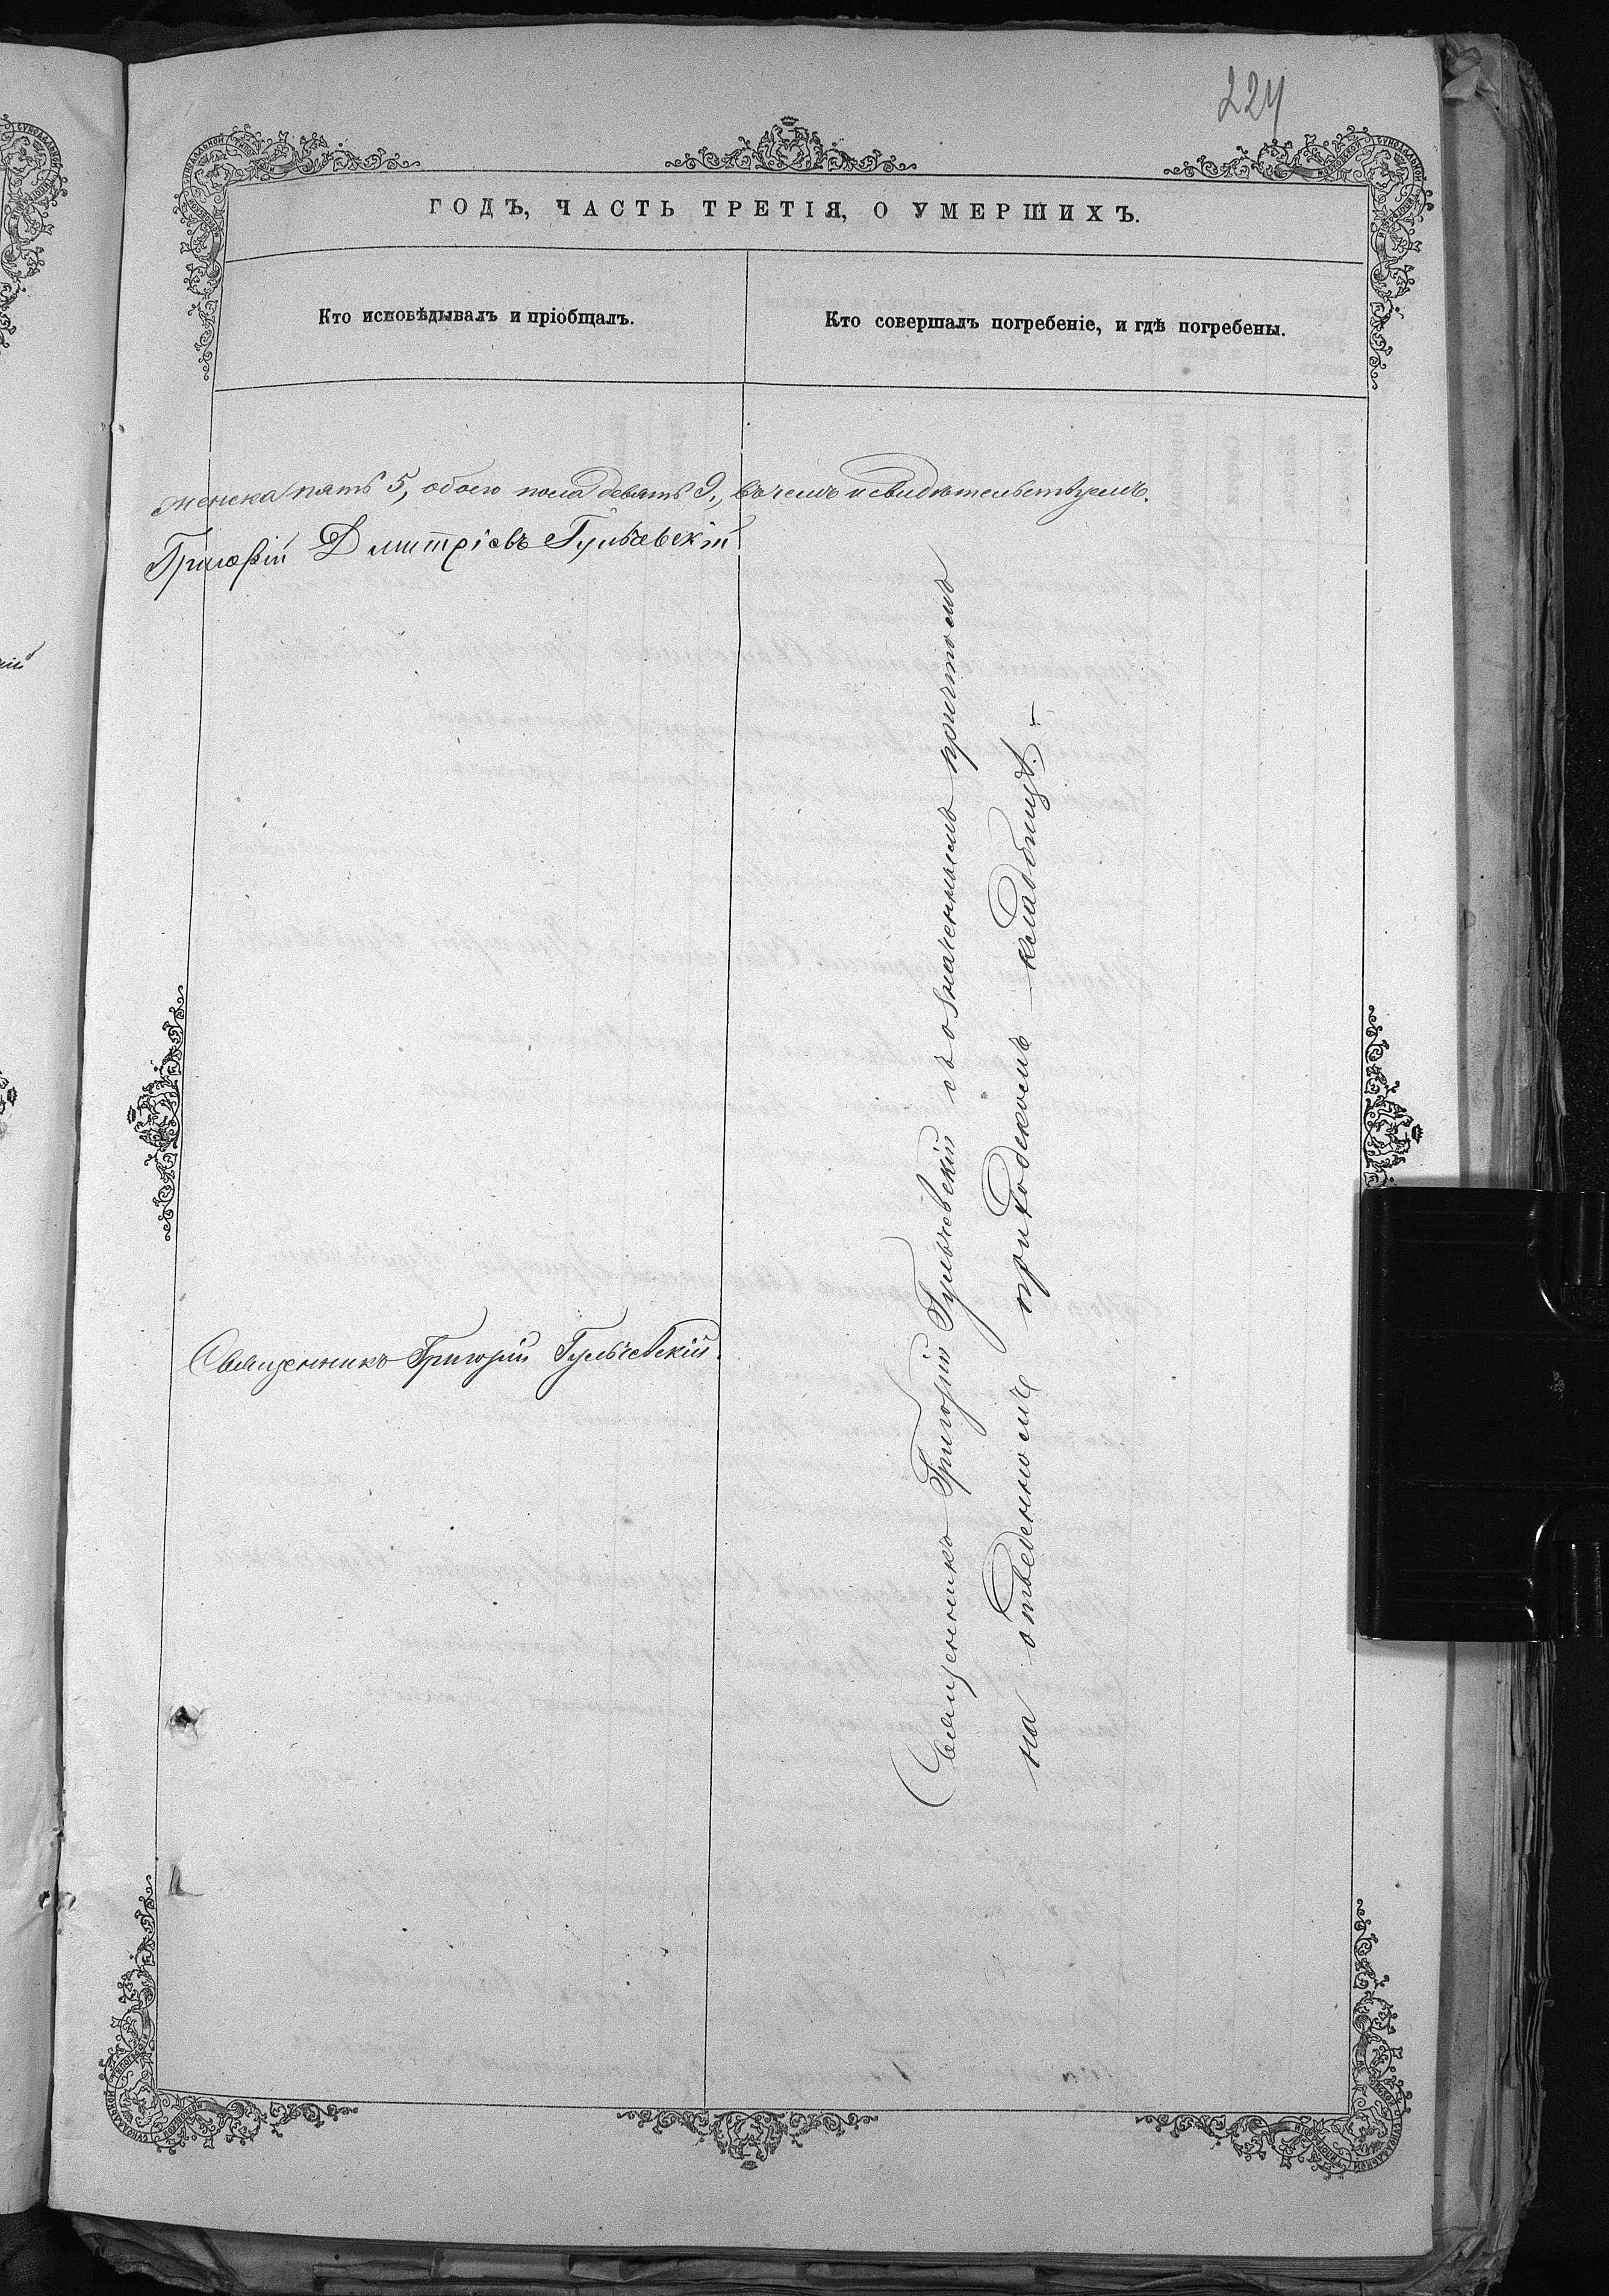 224
ГОДЪ, ЧАСТЬ ТРЕТІЯ, О УМЕРШИХЪ.
Кто исповѣдывалъ и пріобщалъ.
Кто совершалъ погребеніе, и гдѣ погребены.
женска пять 5, обоего пола девять 9, въ чемъ и свидѣтельствуемъ.
Григорій Дмитріевъ Гульчевскій
Священникъ Григорій Гульчевскій.
Священникъ Григорій Гульчевскій съ означеннымъ причтомъ
на отведенномъ приходскомъ кладбищѣ.